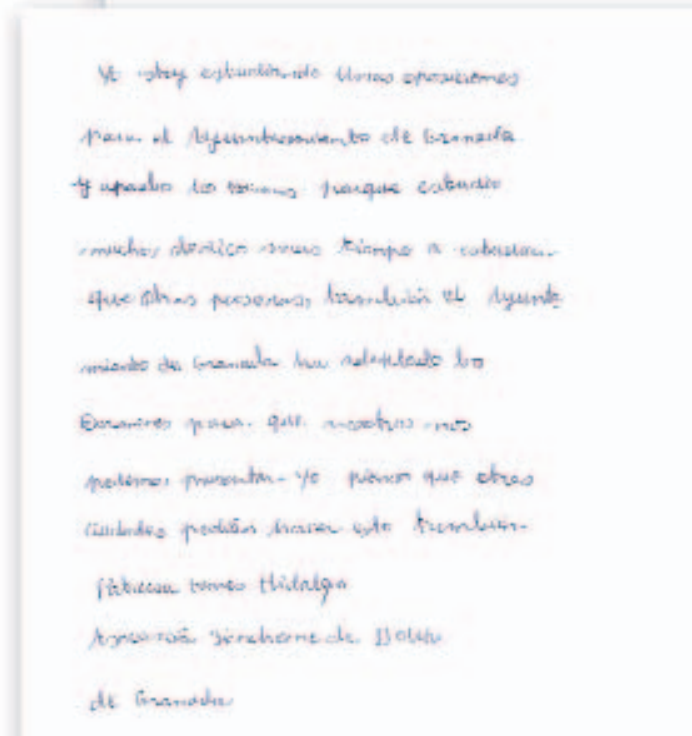 Yo estoy estudiando Unas oposiciones
para el Ayuntamiento de Granada
y apruebo los temas porque estudio
mucho, dedico mas tiempo a estudiar
que otras personas, también el Ayunta
miento de Granada ha adaptado los
Examenes para que nosotros nos
podamos presentar. Yo pienso que otras
Ciudades podrían hacer esto también.
Torres Hidalgo
Asociación Síndrome de Down
de Granada